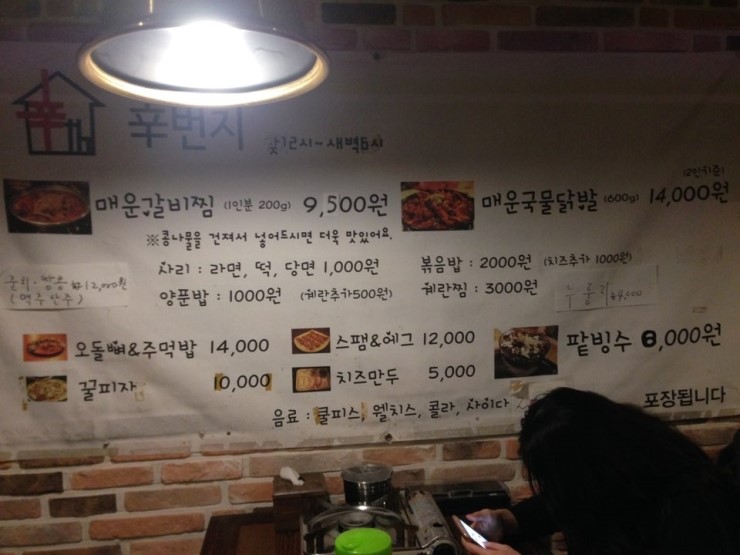 辛번지 낮12시~새벽6시
(2인기준)
매운갈비찜 (1인분 200g) 9,500원
매운국물닭발 (600g) 14,000원
※콩나물을 건져서 넣어드시면 더욱 맛있어요.
사리 : 라면, 떡, 당면 1,000원
양푼밥 : 1000원 (계란추가500원)
볶음밥 : 2000원 (치즈추가 1000원)
계란찜 : 3000원
₩12,000원
(맥주안주)
₩4,000
오돌뼈&주먹밥 14,000
꿀피자 10,000
스팸&에그 12,000
치즈만두 5,000
팥빙수 8,000원
음료 : 쿨피스, 웰치스, 콜라, 사이다
포장됩니다